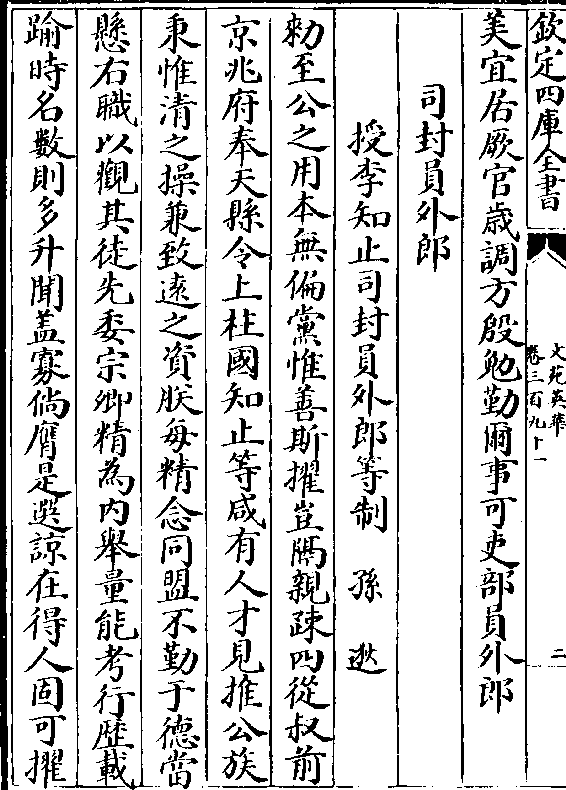 欽定四庫全書
文苑英華
卷三百九十一
二
美宜居厥官歳調方殷勉勤爾事可吏部員外郎
司封員外郎
授李知止司封員外郎等制 孫逖
勑至公之用本無偏黨惟善斯擢豈隔親疎四從叔前
京兆府奉天縣令上柱國知止等咸有人才見推公族
秉惟清之操兼致逺之資朕每精念同盟不勤于德當
懸右職以觀其徒先委宗卿精為内舉量能考行歴載
踰時名數則多升聞盖寡倘膺是選諒在得人固可擢